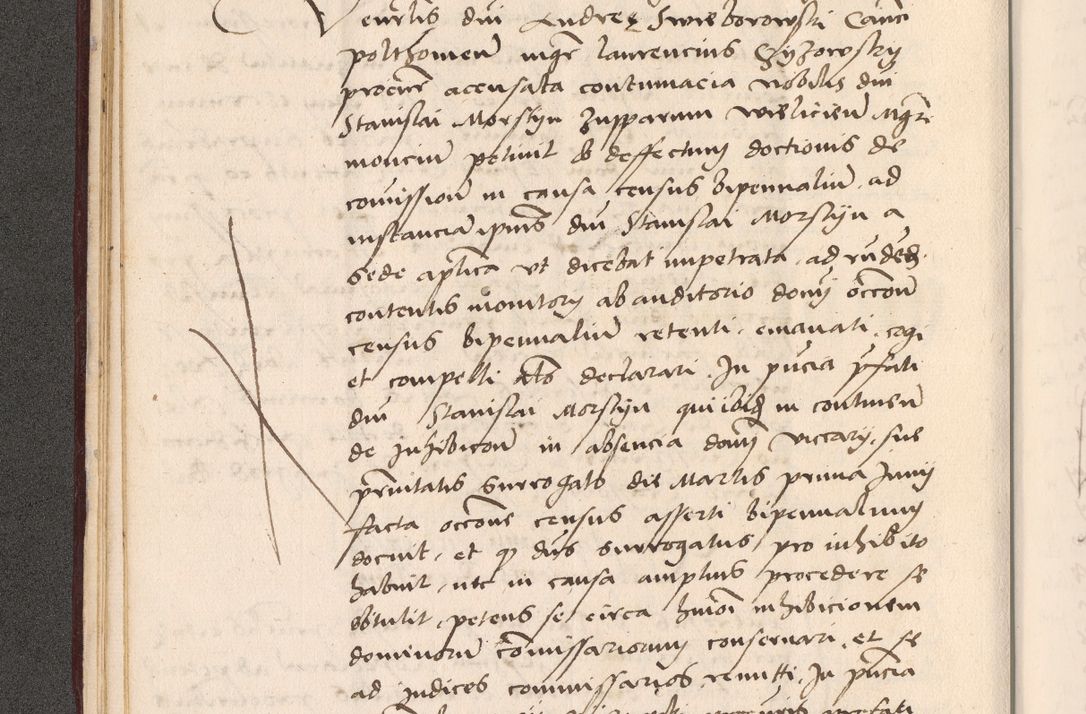 Venerlis dni Andreę Swieborowski Canci
polthovien mgr laurencius Czyżowsky
procur accusata contumacia nobilis dni
Stanislai Morstijn Zupparum vielicien Mgri
moncium petiuit ob deffectum doctionis de
comission in causa census bipennalium ad
instanciam ipius dni Stanislai Morstijn a
sede aplica ut dicebat impetrata ad ruden
contentis monitorij ab auditorio domij occone
census bipennalium retenti emanati cogi
et compelli declarari. In pncia pfati
dni Stanislai Morstijn qui ibidem in continen
de inhibicione in absencia domij viccarij sue
prnitatis surrogato die Martis prima Junij
facta occone census asserti bipennalium
docuit et q dns surrogatus pro inhibito
habuit nec in causa amplius procedere se
obtulit petens se circa hmoi inhibicionem
dominorum comissariorum conseruari et se
ad judices commissarios remitti. In pncia